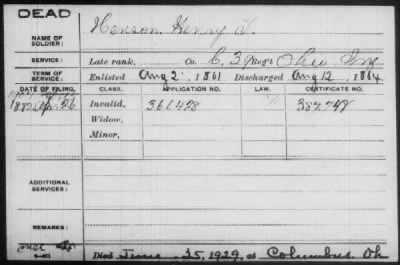 DEAD
NAME OF SOLDIER: Henson Henry T.
SERVICE: Late rank, Co. C. 3 Reg't Ohio Inf
TERM OF SERVICE: Enlisted Aug 2, 1861 Discharged Aug 12, 1864
DATE OF FILING. CLASS. APPLICATION NO. LAW. CERTIFICATE NO.
1880 Apr. 26 Invalid, 361.428 387.748
Widow,
Minor,
ADDITIONAL SERVICES:
REMARKS:
Died June 25, 1929, at Columbus. Oh